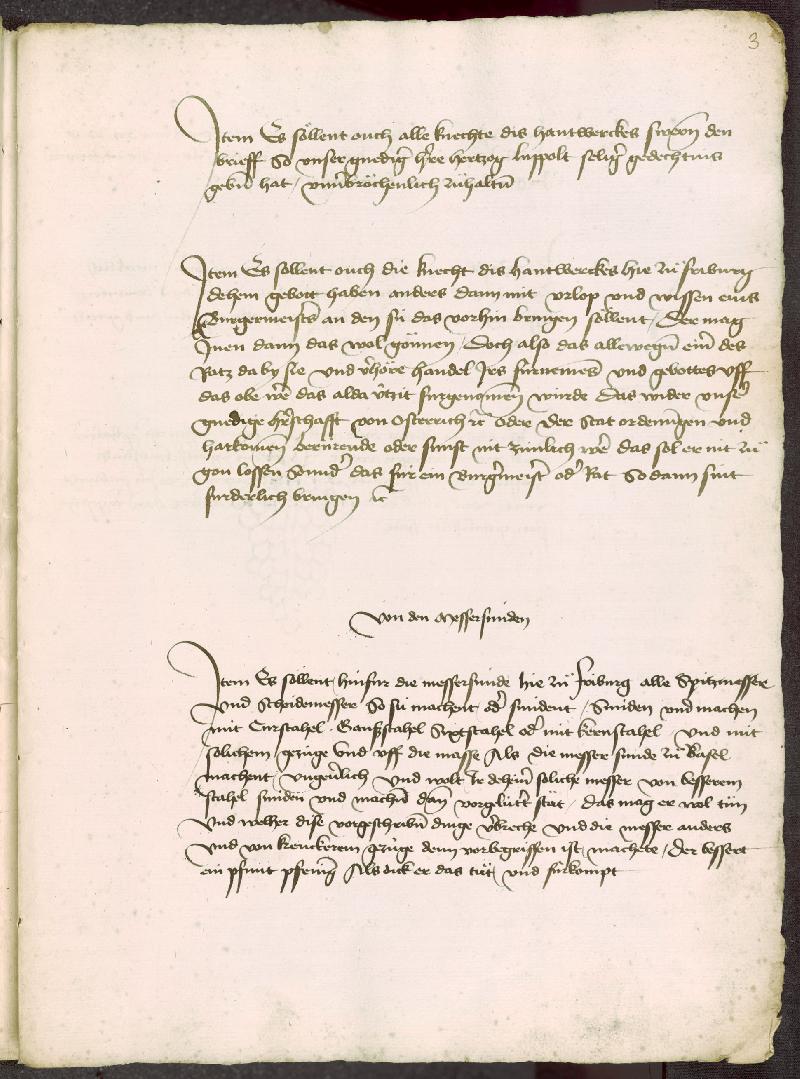 3
Item Es söllent ouch alle knechte dis hantwerckes sweren den
brieff So vnser gnedig h're hertzog luppolt selig' gedechtnis
geben hat / vnu'bröchenlich zühaltn̄
Item Es söllent ouch die knecht dis hantwerckes hie zü friburg
dehein gebott haben anders dann mit vrlop vnd wissen eins
Burgermeisters an den sü das vorhin bringen söllent / Der mag
Inen dann das wol gönnen / Doch also das allewegen̄ ein' des
Ratz da by sie vnd v'höre handel Irs furnemens vnd gebottes vff
das obe we' das alda ützit furgenomen̄ wurde Das wider vnser
gnedige h'rschafft von Osterrich ꝛc oder der Stat ordenūgen vnd
harkomen̄ berurende oder sunst nit zimlich we' das sol er nit zü
gon lossen Sonnd' das fur ein Burg'meist' od' Rat So dann sint
furderlich bringen ꝛc
Von den Messersmiden
Item Es söllent hinfur die messersmide hie zü friburg alle Spitzmesser
vnd Scheidemesser So sü machent od' smident / Smiden vnd machen
mit Curstahel . Saufzstahel Sigstahel od' mit kernstahel / vnd mit
solichem gezüge vnd vff die masse Als die messer smide zü Basel
machent / vngeu'lich vnd wolt Ir dehein' soliche messer von besserem
stahel smiden vnd machen̄ dan̄ vorgelüt't stat / das mag er wol tün
vnd welher dise vorgeschriben̄ dinge v'breche vnd die messer anders
vnd von kranckerem gezüge denn vorbegriffen ist / machete / Der bessert
ein pfunt pfenig' Als dick er das tüt / vnd furkompt